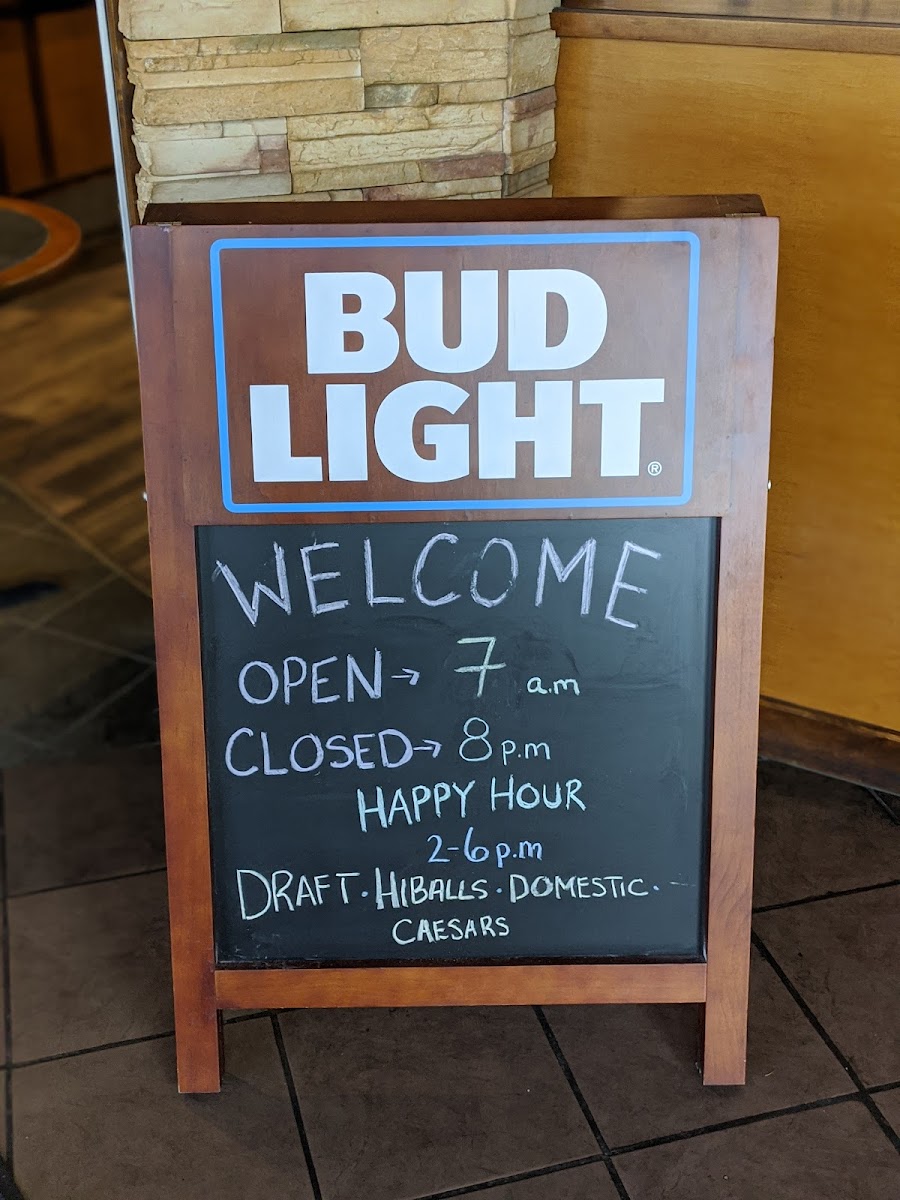 BUD
LIGHT®
WELCOME
OPEN → 7 a.m
CLOSED → 8 p.m
HAPPY HOUR
2-6 p.m
DRAFT · HIBALLS · DOMESTIC ·
CAESARS